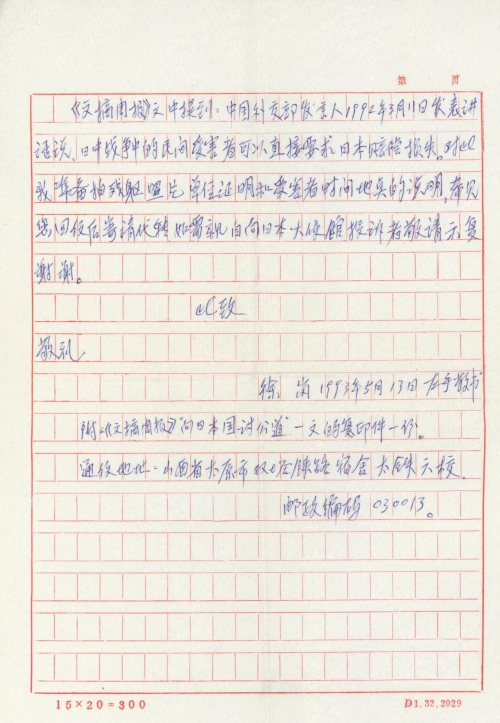 第 页
《文摘周报》文中提到：中国外交部发言人1992年3月11日发表讲
话说，日中战争中的民间受害者可以直接要求日本赔偿损失。对此
我准备拍成 照片 单位证明和受害者时间地点的说明，待见
您回信后寄请代转 如需亲自向日本大使馆投诉者敬请示复
谢谢。
此致
敬礼
徐 1993年5月13日 左手敬书
附：《文摘周报》"向日本国讨公道"一文的复印件一份。
通信地址：山西省太原市 铁路宿舍 太铁六校．
邮政编码 030013。
15×20=300
D1.32.2029